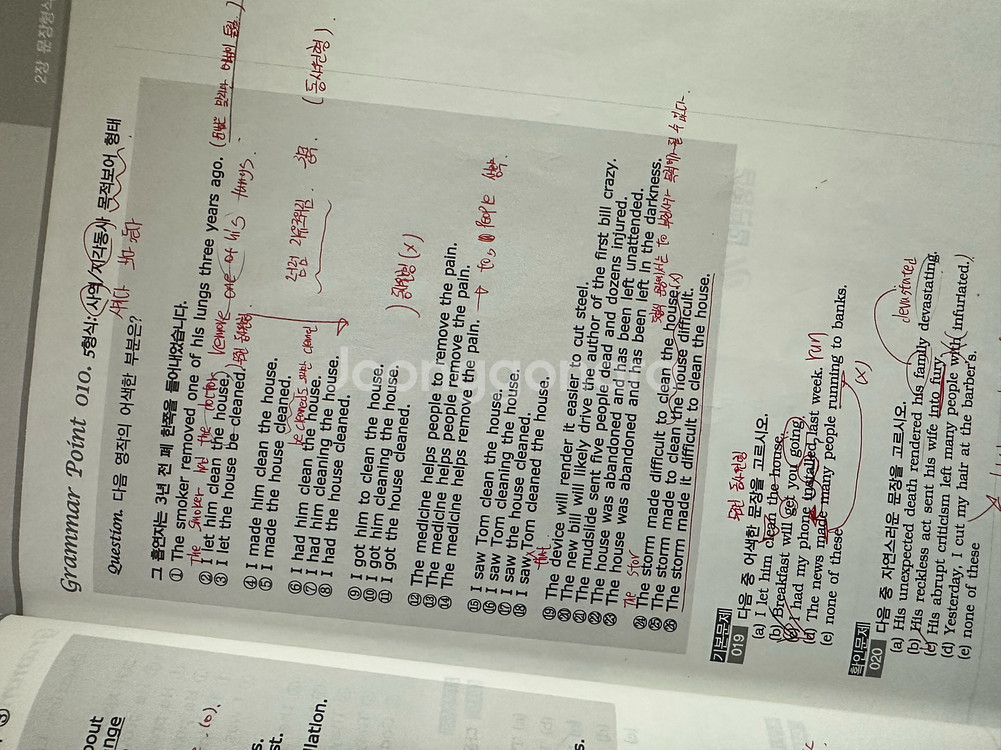 2장 문장형식
Grammar Point 010. 5형식: 사역/지각동사 목적보어 형태
Question. 다음 영작의 어색한 부분은?
그 흡연자는 3년 전 폐 한쪽을 들어내었습니다.
① The smoker removed one of his lungs three years ago.
The smoker had the doctor remove one of his lungs.
② I let him clean the house.
③ I let the house be cleaned.
④ I made him clean the house.
⑤ I made the house cleaned.
⑥ I had him clean the house.
⑦ I had him cleaning the house.
⑧ I had the house cleaned.
⑨ I got him to clean the house.
⑩ I got him cleaning the house.
⑪ I got the house cleaned.
동원형 (x)
(동사원형)
⑫ The medicine helps people to remove the pain.
⑬ The medicine helps people remove the pain.
⑭ The medicine helps remove the pain.
→ to, people 생략.
⑮ I saw Tom clean the house.
⑯ I saw Tom cleaning the house.
⑰ I saw the house cleaned.
⑱ I saw Tom cleaned the house.
that
⑲ The device will render it easier to cut steel.
⑳ The new bill will likely drive the author of the first bill crazy.
㉑ The mudslide sent five people dead and dozens injured.
㉒ The house was abandoned and has been left unattended.
㉓ The house was abandoned and has been left in the darkness.
The stor
㉔ The storm made difficult to clean the house.(x)
㉕ The storm made to clean the house difficult.
㉖ The storm made it difficult to clean the house.
기본문제
019 다음 중 어색한 문장을 고르시오.
(a) I let him clean the house.
(b) Breakfast will get you going.
(c) I had my phone installed last week.
(d) The news made many people running to banks.
run
(x)
(e) none of these
확인문제
020 다음 중 자연스러운 문장을 고르시오.
(a) His unexpected death rendered his family devastating.
devastated
(b) His reckless act sent his wife into fury.
(c) His abrupt criticism left many people with infuriated.
(d) Yesterday, I cut my hair at the barber's.
(e) none of these